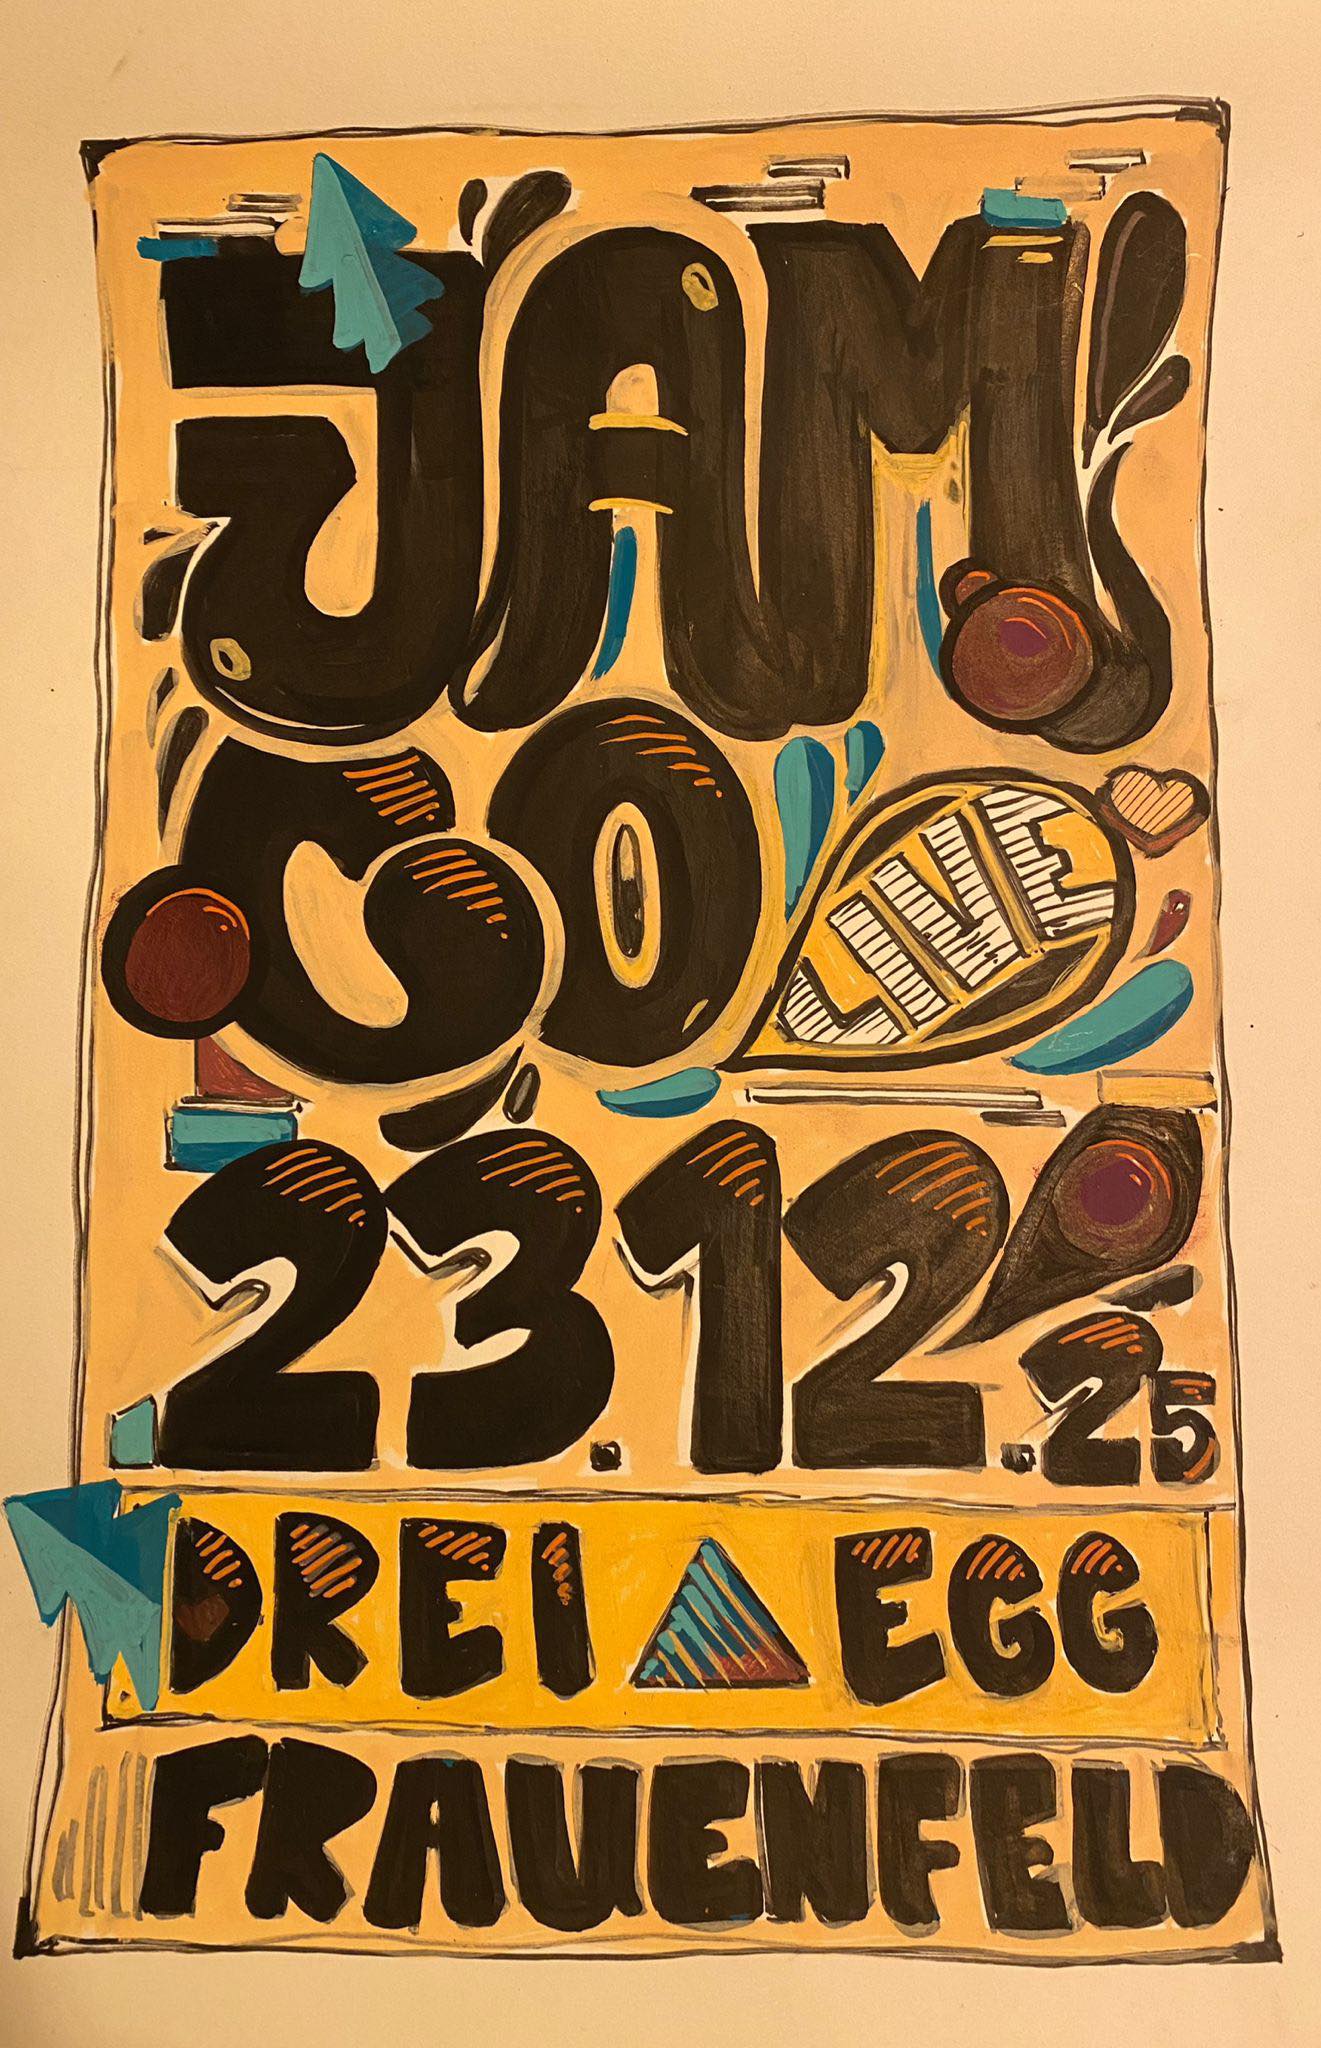 JAM
CO LIVE
23.12.25
DREI EGG
FRAUENFELD